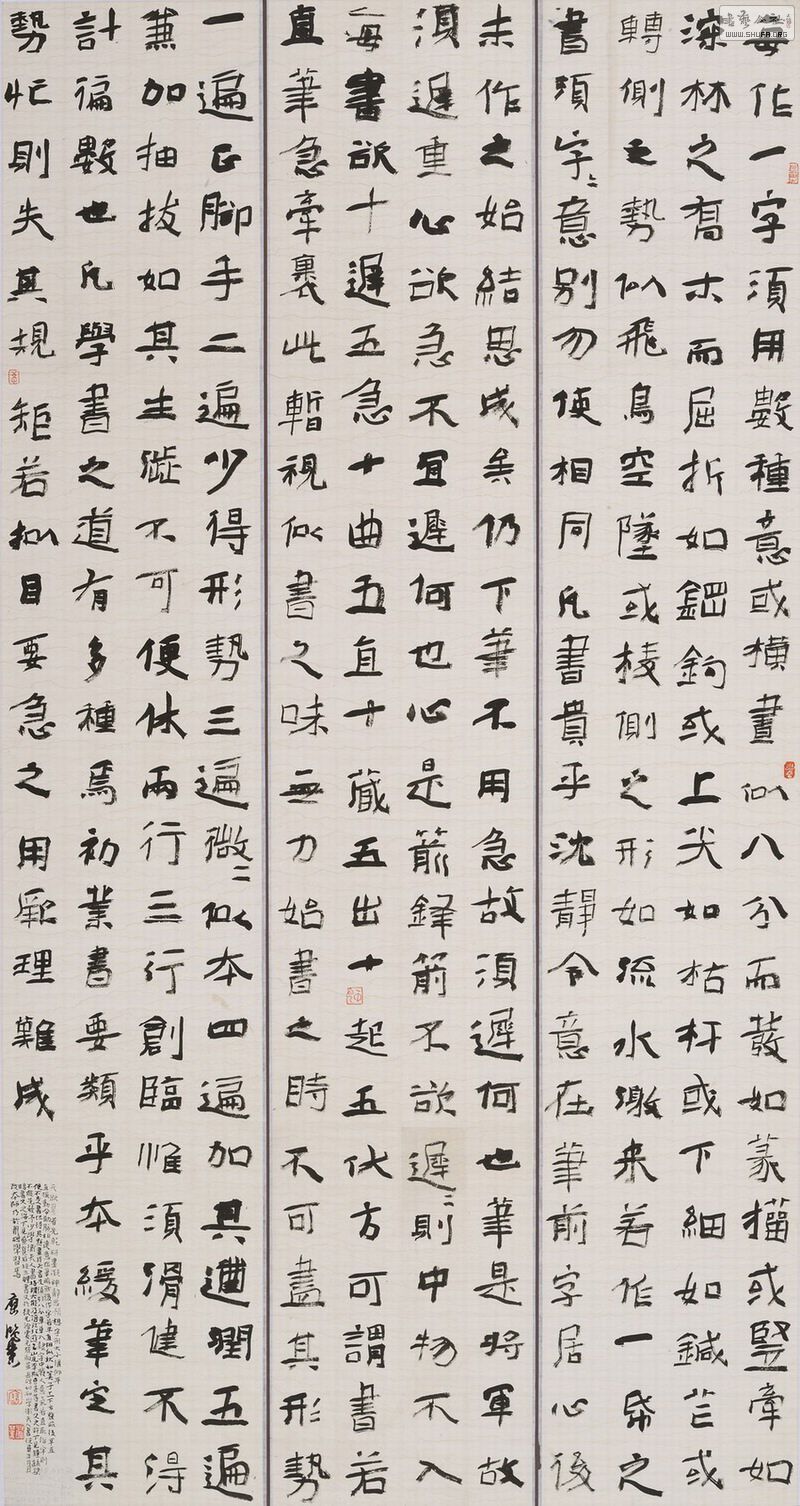 WWW.SHUFA.ORG
每作一字須用數種意或橫畫似八分而發如篆籀或豎牽如
深林之喬木而屈折如鋼鉤或上尖如枯杆或下細如鍼芒或
轉側之勢似飛鳥空墜或棱側之形如流水激来若作一帋之
書須字〻意別勿使相同凡書貴乎沈靜令意在筆前字居心後
未作之始結思成矣仍下筆不用急故須遲何也筆是將軍故
須遲重心欲急不宜遲何也心是箭鋒箭不欲遲〻則中物不入
每書欲十遲五急十曲五直十藏五出十起五伏方可謂書若
直筆急牽裹此暫視似書之味無力始書之時不可盡其形勢
一遍正腳手二遍少得形勢三遍微〻似本四遍加其遒潤五遍
兼加抽拔如其生澁不可便休兩行三行創臨惟須滑健不得
計徧數也凡學書之道有多種焉初業書要類乎本緩筆定其
勢忙則失其規矩若拟目要急之用厥理難成